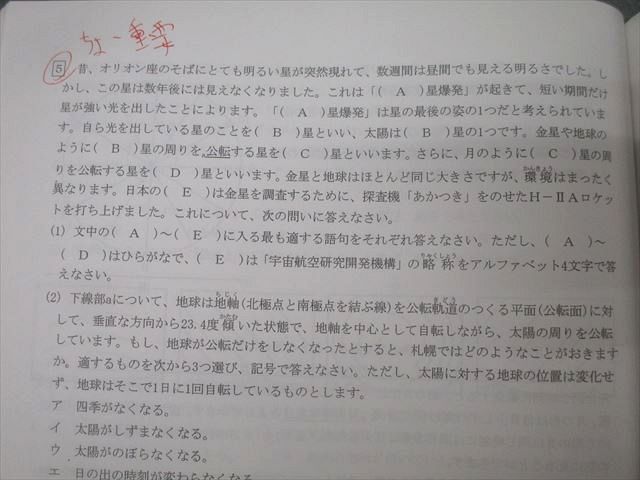 ちょー重要
5 昔、オリオン座のそばにとても明るい星が突然現れて、数週間は昼間でも見える明るさでした。し
かし、この星は数年後には見えなくなりました。これは「( A )星爆発」が起きて、短い期間だけ
星が強い光を出したことによります。「( A )星爆発」は星の最後の姿の1つだと考えられていま
す。自ら光を出している星のことを( B )星といい、太陽は( B )星の1つです。金星や地球の
ように( B )星の周りを公転する星を( C )星といいます。さらに、月のように( C )星の周
りを公転する星を( D )星といいます。金星と地球はほとんど同じ大きさですが、環境はまったく
異なります。日本の( E )は金星を調査するために、探査機「あかつき」をのせたH-ⅡAロケッ
トを打ち上げました。これについて、次の問いに答えなさい。
(1) 文中の( A )～( E )に入る最も適する語句をそれぞれ答えなさい。ただし、( A )～
( D )はひらがなで、( E )は「宇宙航空研究開発機構」の略称をアルファベット4文字で答
えなさい。
(2) 下線部aについて、地球は地軸(北極点と南極点を結ぶ線)を公転軌道のつくる平面(公転面)に対
して、垂直な方向から23.4度傾いた状態で、地軸を中心として自転しながら、太陽の周りを公転
しています。もし、地球が公転だけをしなくなったとすると、札幌ではどのようなことがおきます
か。適するものを次から3つ選び、記号で答えなさい。ただし、太陽に対する地球の位置は変化せ
ず、地球はそこで1日に1回自転しているものとします。
ア 四季がなくなる。
イ 太陽がしずまなくなる。
ウ 太陽がのぼらなくなる。
エ 日の出の時刻が変わらなくなる